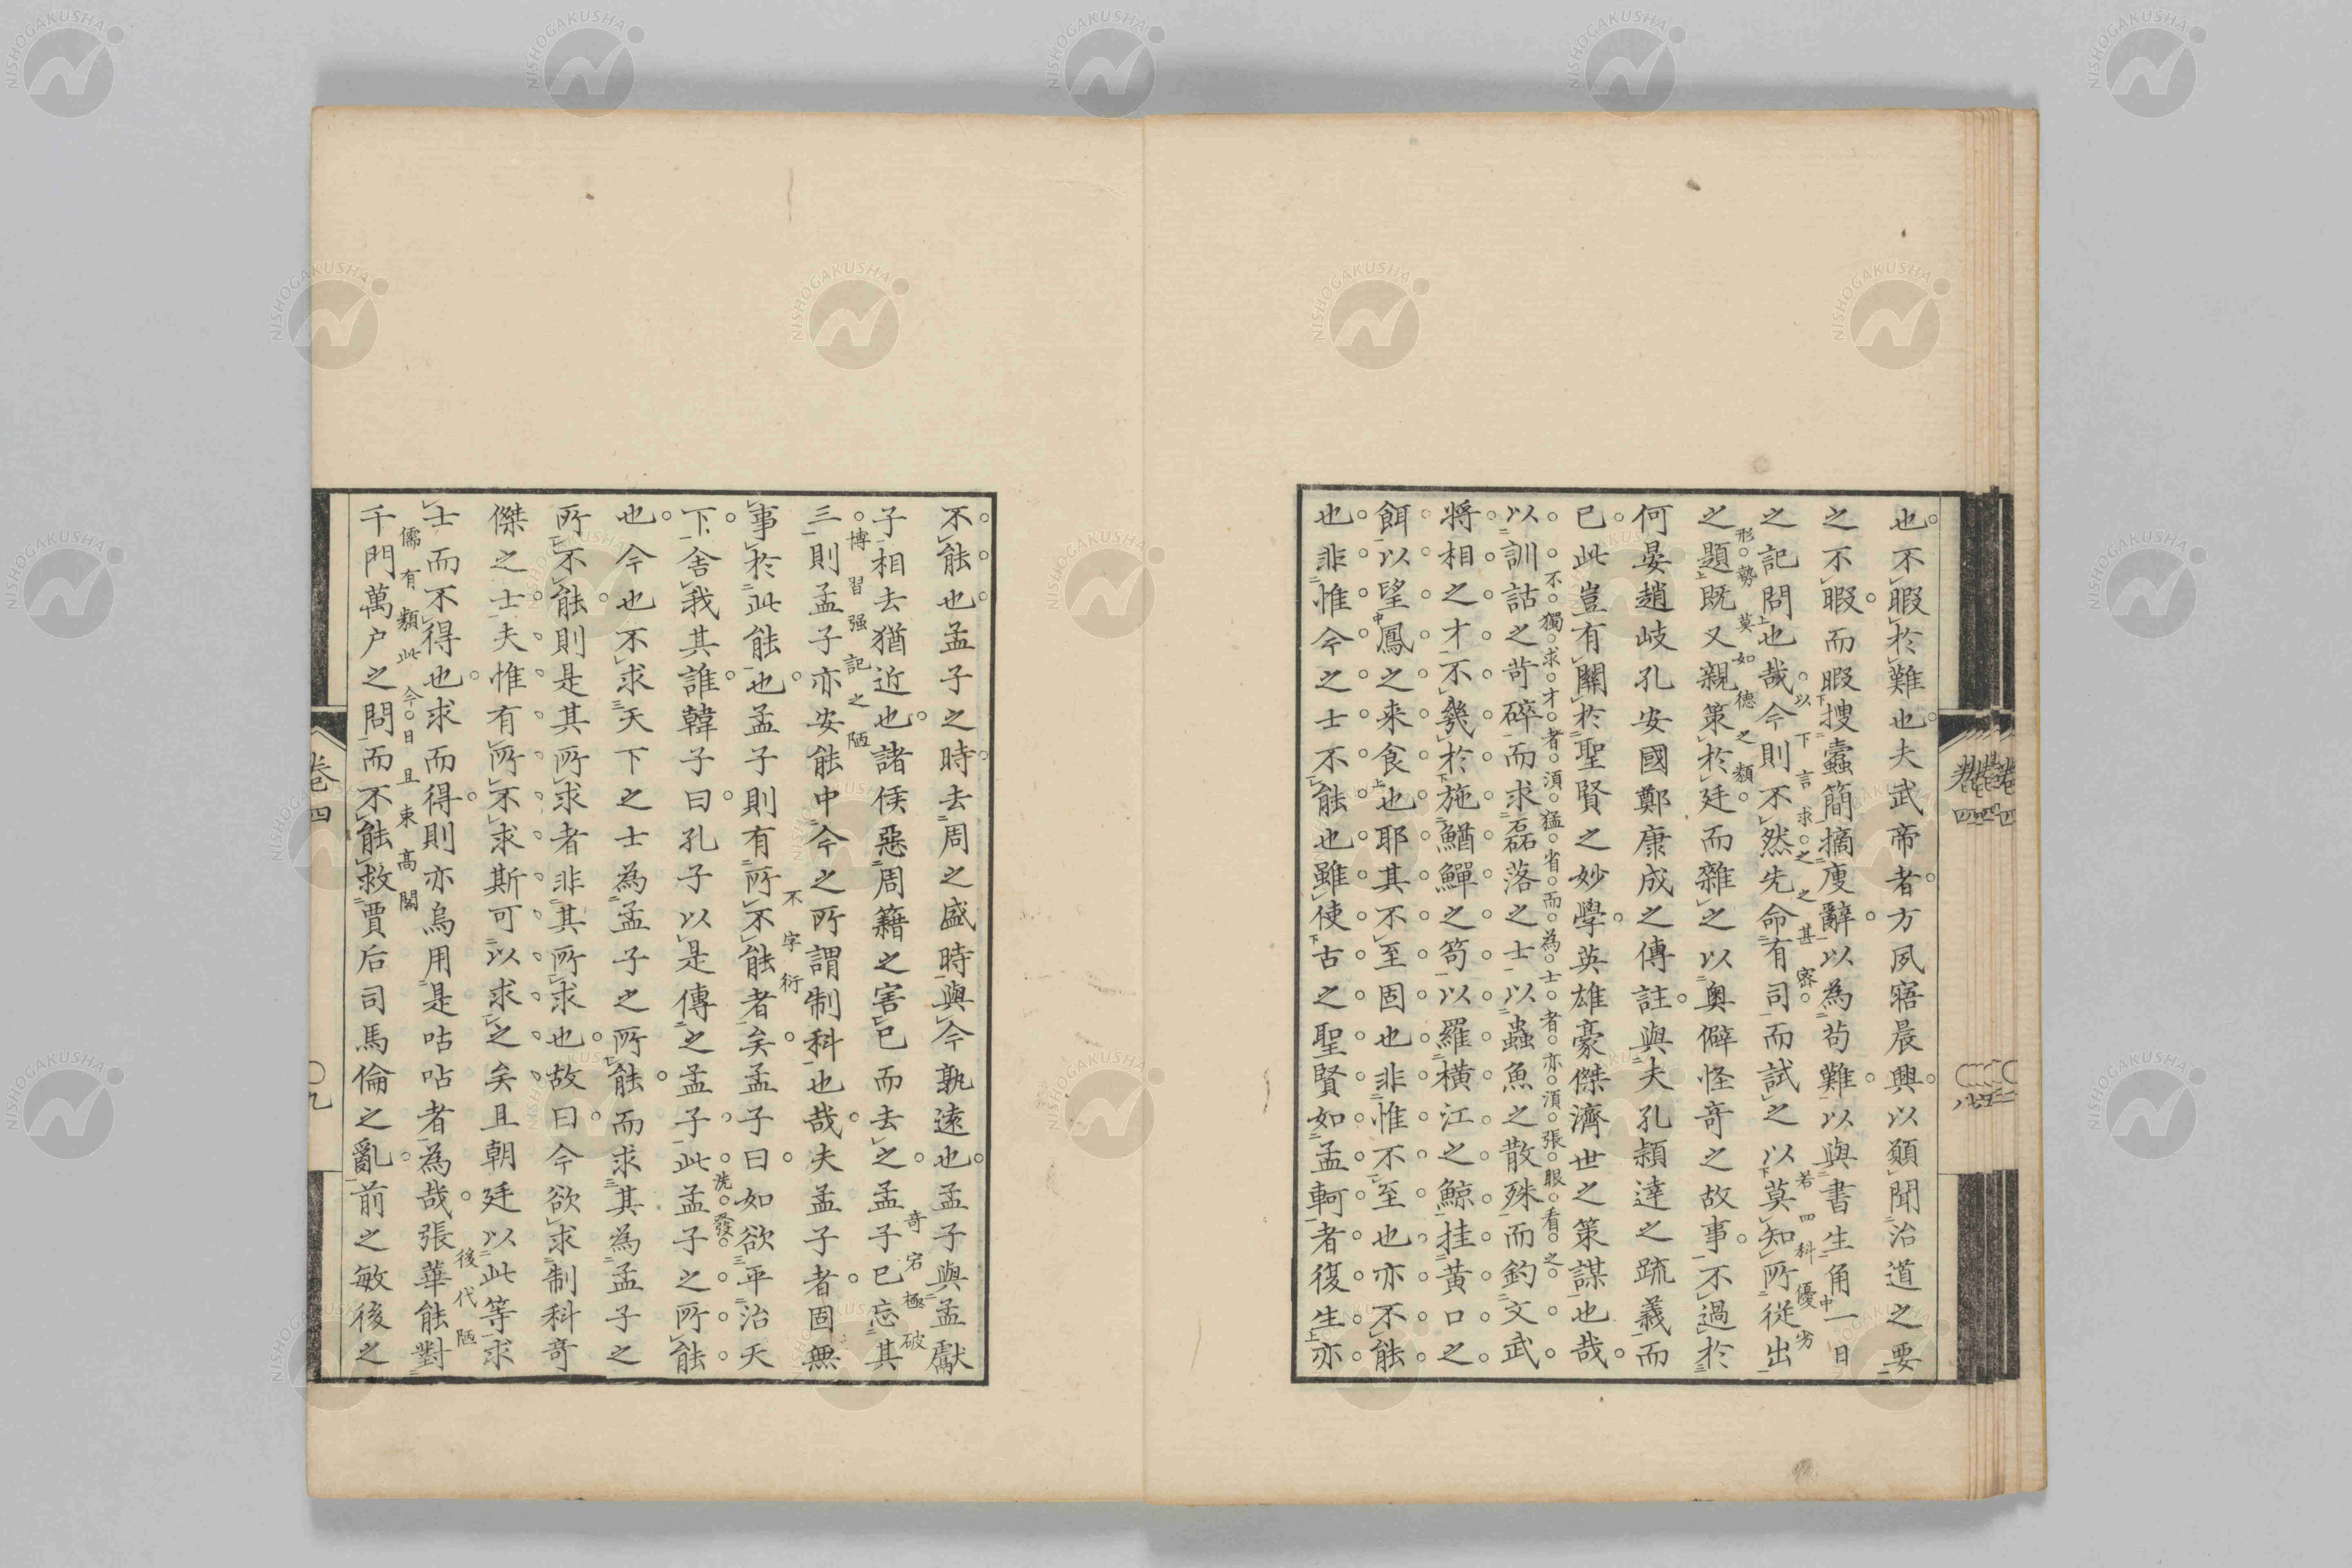 也不暇於難也夫武帝者方夙寤晨興以願聞治道之要
之不暇而暇搜蠹簡摘廋辭以為苟難以與書生角一日
之記問也哉今則不然先命有司而試之以莫知所從出
以下言求之之甚密
若四科優劣
之題既又親策於廷而雜之以奧僻怪奇之故事不過於
形勢莫如德之類
何晏趙岐孔安國鄭康成之傳註與夫孔穎達之疏義而
已此豈有關於聖賢之妙學英雄豪傑濟世之策謀也哉
以訓詁之苛碎而求磊落之士以蟲魚之散殊而釣文武
不獨求才者須猛省而為士者亦須張眼看之
將相之才不幾於施鰌鱓之笱以羅橫江之鯨挂黃口之
餌以望鳳之来食也耶其不至固也非惟不至也亦不能
也非惟今之士不能也雖使古之聖賢如孟軻者復生亦
不能也孟子之時去周之盛時與今孰遠也孟子與孟獻
子相去猶近也諸侯惡周籍之害已而去之孟子已忘其
奇宕極破
三則孟子亦安能中今之所謂制科也哉夫孟子者固無
博習强記之陋
事於此能也孟子則有所不能者矣孟子曰如欲平治天
不字衍
下舍我其誰韓子曰孔子以是傳之孟子此孟子之所能
洗發
也今也不求天下之士為孟子之所能而求其為孟子之
所不能則是其所求者非其所求也故曰今欲求制科奇
傑之士夫惟有所不求斯可以求之矣且朝廷以此等求
士而不得也求而得則亦烏用是呫呫者為哉張華能對
後代陋
千門萬户之問而不能救賈后司馬倫之亂前之敏後之
儒有類此今日且束高閣
卷四
〇九